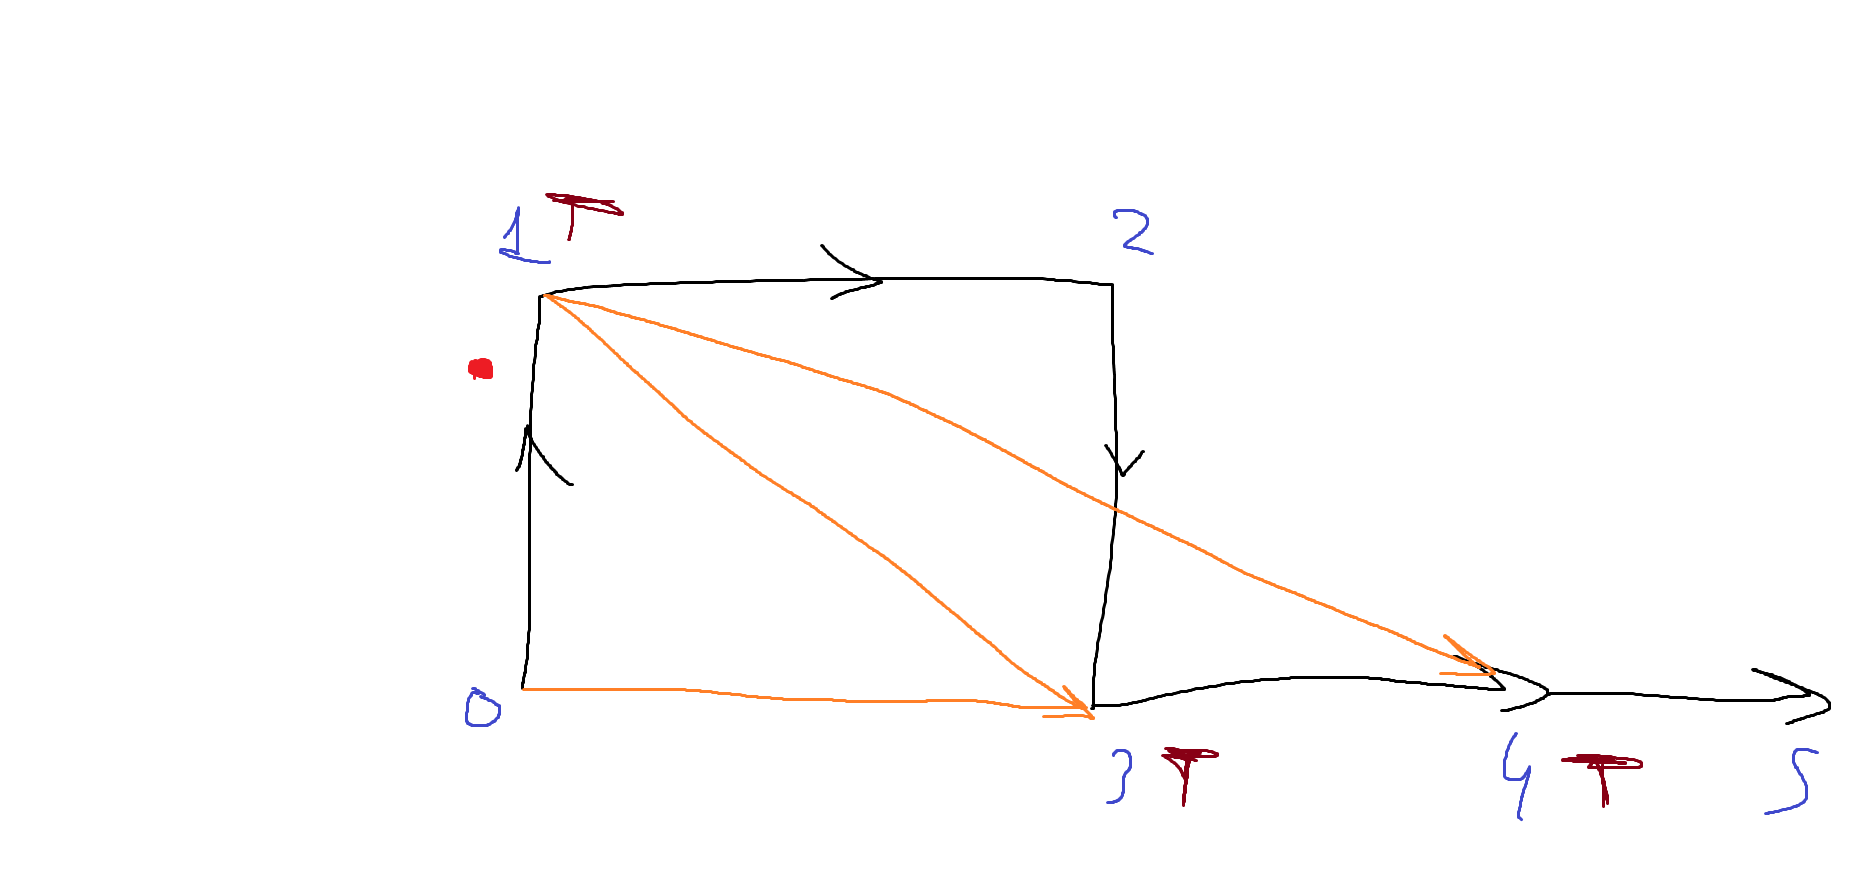 1 T 2
0
3 T 4 T 5